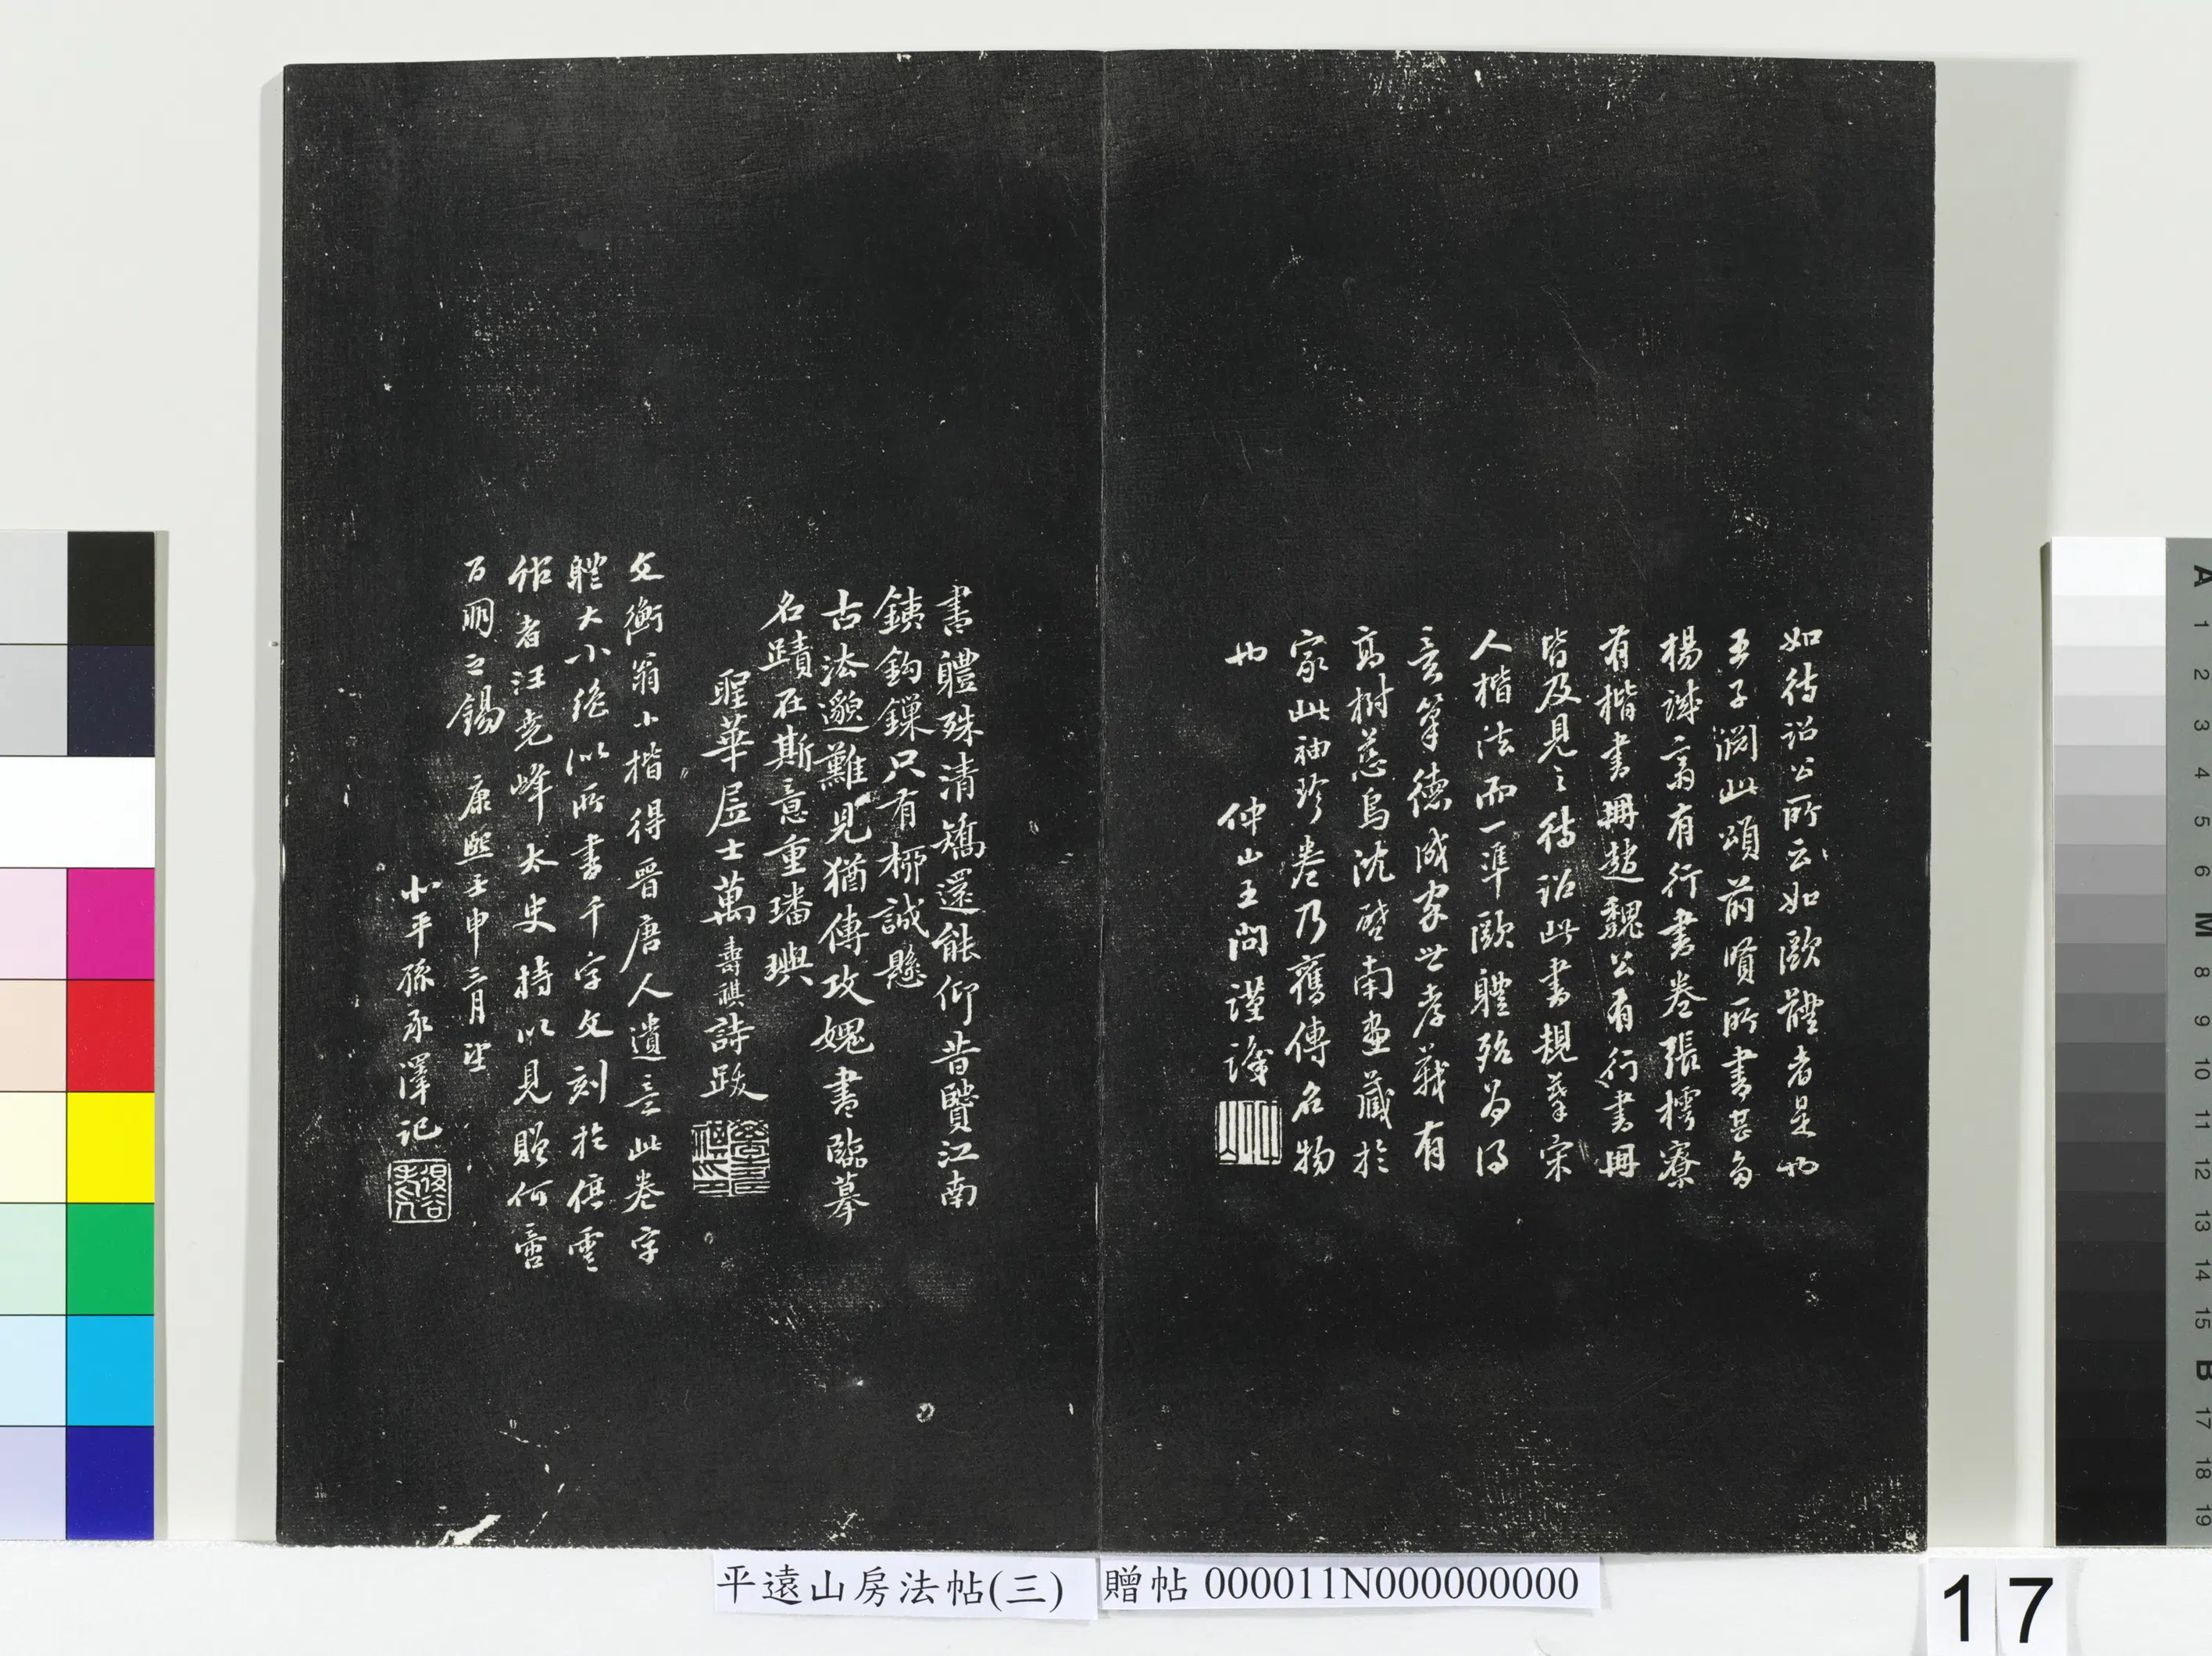 如待詔公所云如歐體者是也
王子淵此頌前賢所書甚多
楊誠齋有行書卷張樗寮
有楷書冊趙魏公有行書冊
皆及見之待詔此書規摹宋
人楷法而一準歐體殆為得
意筆德成家世孝義有
高樹慈烏沈啓南畫藏於
家此袖珍卷乃舊傳名物
也
仲山王問謹識
書體殊清矯還能仰昔賢江南
銕鉤鏁只有柳誠懸
古法邈難見猶傳攻媿書臨摹
名蹟在斯意重璠璵
聖華居士萬壽祺詩跋
文衡翁小楷得晉唐人遺意此卷字
體大小絶似所書千字文刻於停雲
作者汪堯峰太史持以見贈何啻
百朋之錫 康熙壬申三月望
北平孫承澤記
平遠山房法帖(三)
贈帖 000011N000000000
17
A 1 2 3 4 5 6 M 8 9 10 11 12 13 14 15 B 17 18 19